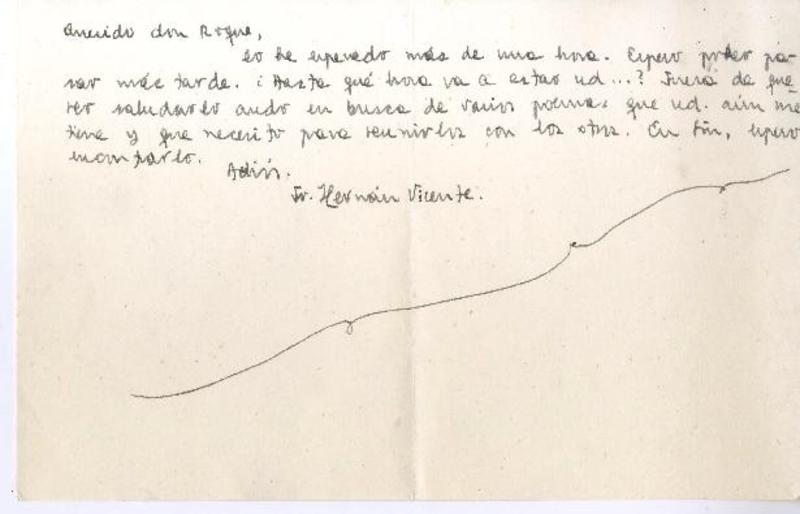 Querido don Roque,
lo he esperado más de una hora. Espero poder pa-
sar más tarde. ¿Hasta qué hora va a estar ud...? Fuera de que-
rer saludarlo ando en busca de varios poemas que ud. aún me
tiene y que necesito para reunirlos con los otros. En fin, espero
encontrarlo.
Adiós.
Fr. Hernán Vicente.